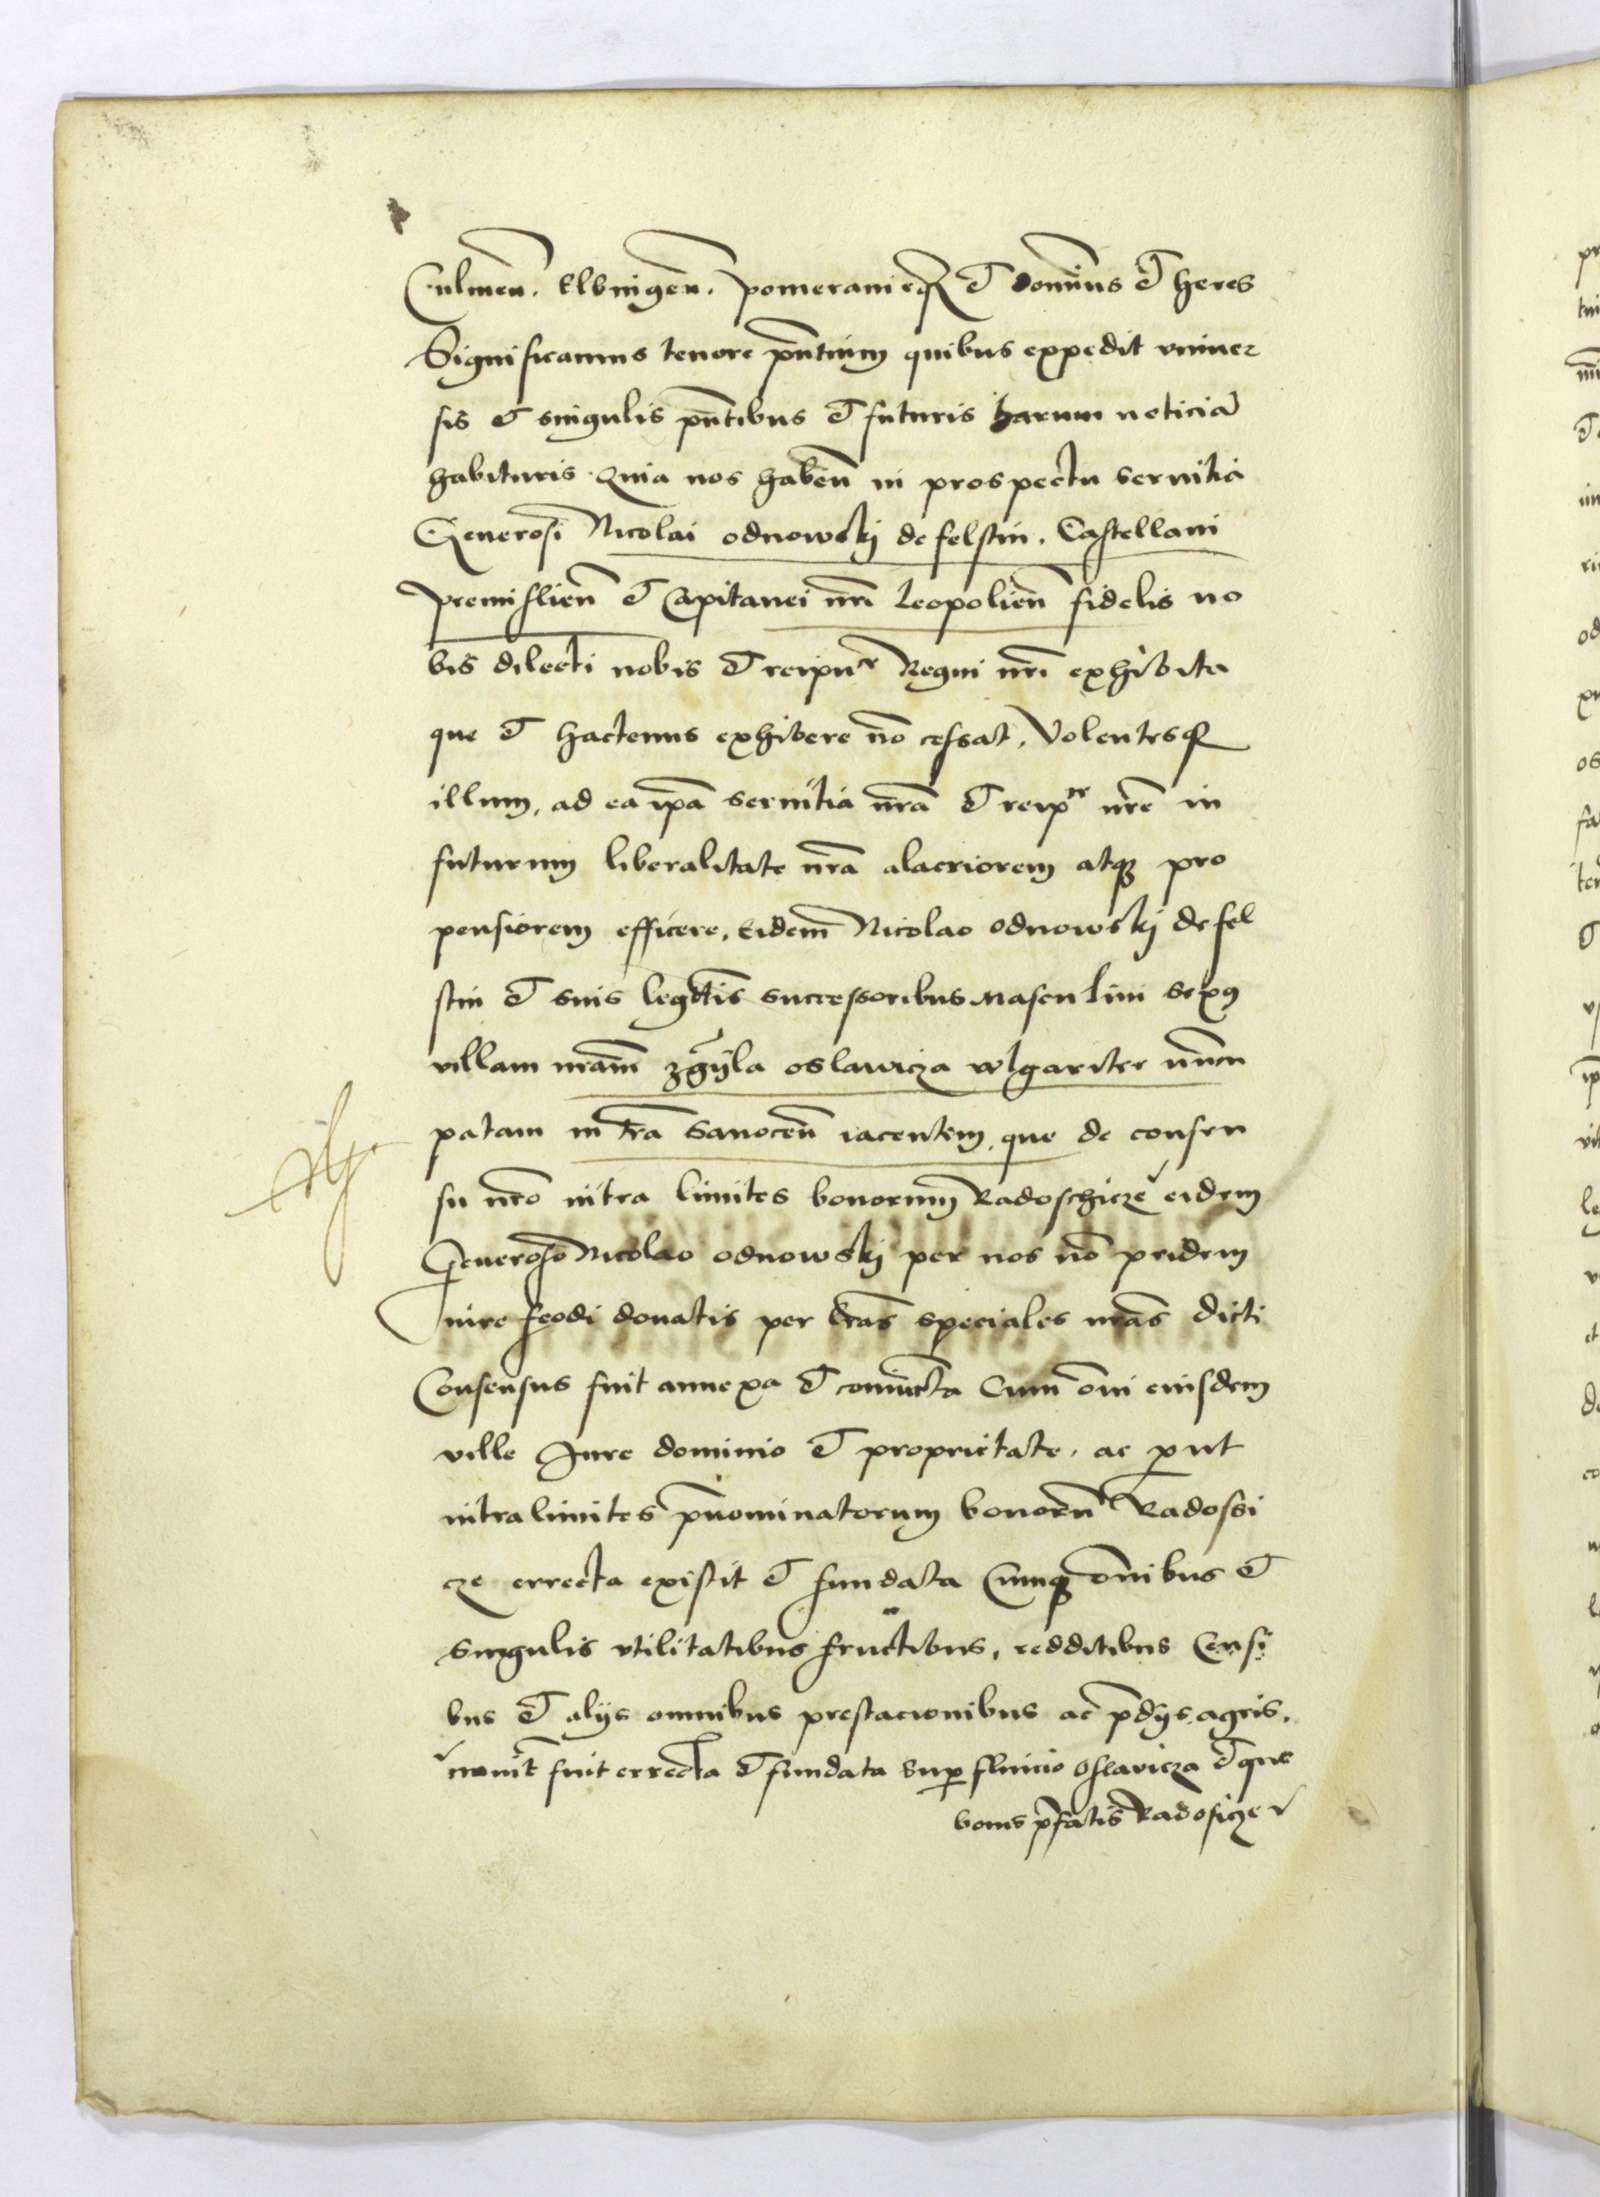 Culmen̄. Elbingen̄. pomeranieq̃ et dominus et heres
Significamus tenore pn̄tium quibus expedit vniuer
sis et singulis pn̄tibus et futuris harum noticiā
habituris. Quia nos haben̄ in prospectu seruitia
Generosi Nicolai odnowskj de felstin. Castellani
premislien̄ et Capitanei nr̄i leopolien̄ fidelis no
bis dilecti nobis et reipu͞e Regni nr̄i exhibita
que et hactenus exhibere nō cessat. Volentesq̃
illum, ad ea ip̄a seruitia nr̄a et reip͞e nr̄e in
futurum liberalitate nr̄a alacriorem atq̃ pro
pensiorem efficere. Eidem̄ Nicolao odnowskj de fel
stin et suis legt̄is successoribus masculini sexus
villam nr̄am zgijla oslawicza vlgariter nun̄cu
patam in tr̄a Sanocen̄ iacentem. que de consen
su nr̄o intra limites bonorum̄ Radoschicze eidem
Generoso Nicolao odnowskj per nos nō pridem
iure feodi donatis per lr̄as speciales nr̄as dicti
Consensus fuit annexa et coniuncta Cum om̄i eiusdem
ville Jure dominio et proprietate. ac put
intra limites pn̄ominatorum bonorū Radossi
cze errecta existit et fundata Cumq̃ om̄ibus et
singulis vtilitatibus fructibus, redditibus Censi
bus et alijs omnibus prestacionibus ac p̄dijs. agris.
fuit errecta et fundata sup fluuio Oslavicza et que
bonis p̄fatis Radosicze